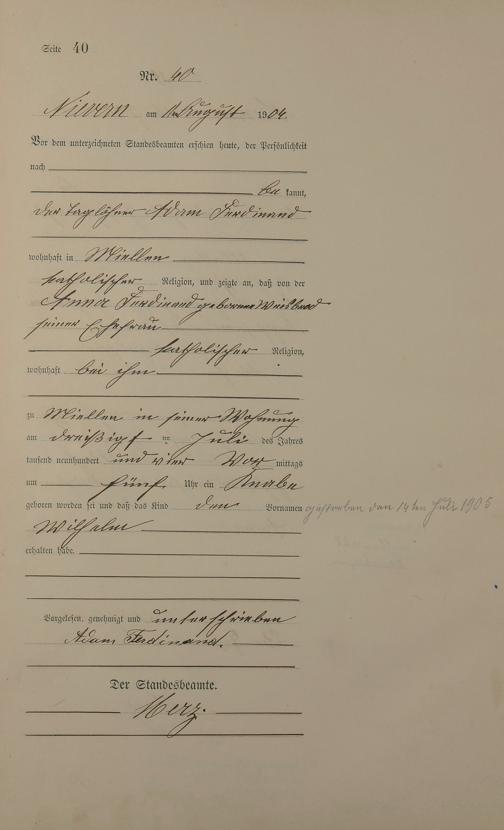 Seite 40
Nr. 40
Nievern am August 1904.
Vor dem unterzeichneten Standesbeamten erschien heute, der Persönlichkeit
nach
be kannt,
der Taglöhner Adam Ferdinand
wohnhaft in Miellen
katholischer Religion, und zeigte an, daß von der
Anna Ferdinand geborene
seiner Ehefrau
katholischer Religion,
wohnhaft bei ihm
zu Miellen in seiner Wohnung
am dreißigst en Juli des Jahres
tausend neunhundert und vier Vor mittags
um fünf Uhr ein Knabe
geboren worden sei und daß das Kind den Vornamen gestorben den 14ten Juli 1905
Wilhelm
erhalten habe.
Vorgelesen, genehmigt und unterschrieben
Adam Ferdinand.
Der Standesbeamte.
Merz.